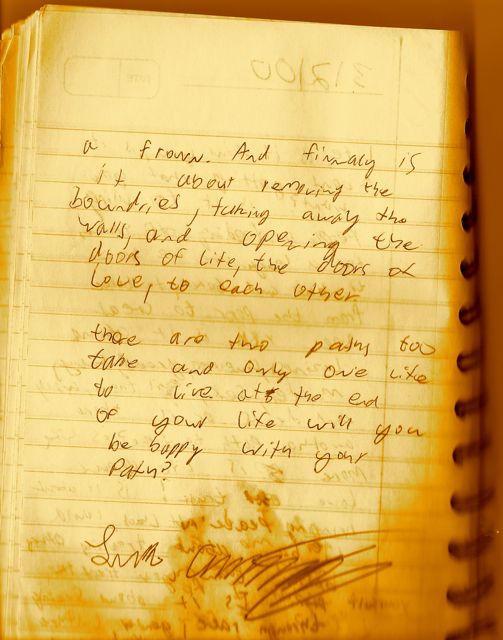 a frown. And finnaly is
it about removing the
boundries, taking away the
walls, and opening the
doors of life, the doors of
Love, to each other
there are two paths too
take and only one life
to live at the end
of your life will you
be happy with your
Path?